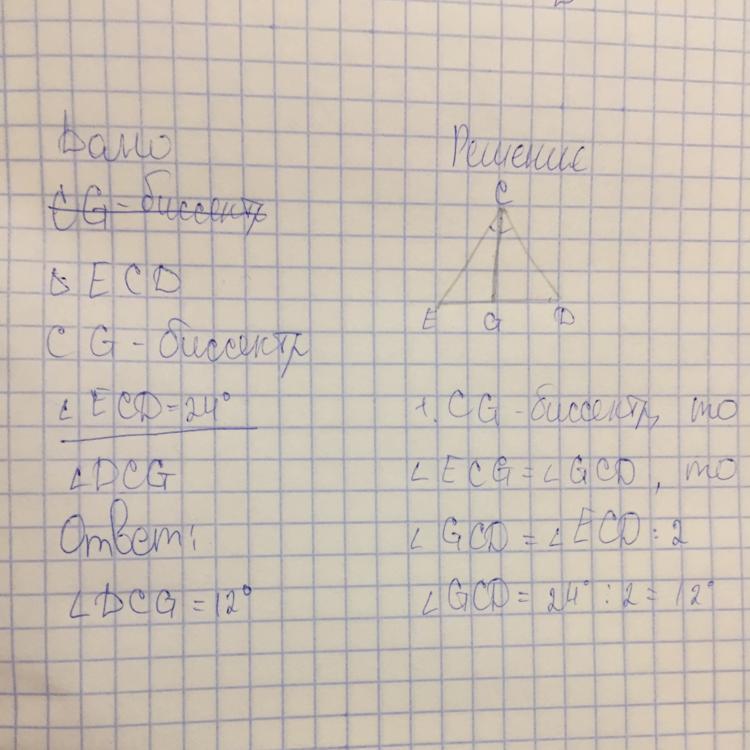 Дано
CG - биссектр
△ ECD
CG - биссектр
∠ ECD = 24°
∠DCG
Ответ:
∠DCG = 12°
Решение
C
E G D
1. CG - биссектр, то
∠ECG = ∠GCD, то
∠GCD = ∠ECD : 2
∠GCD = 24° : 2 = 12°